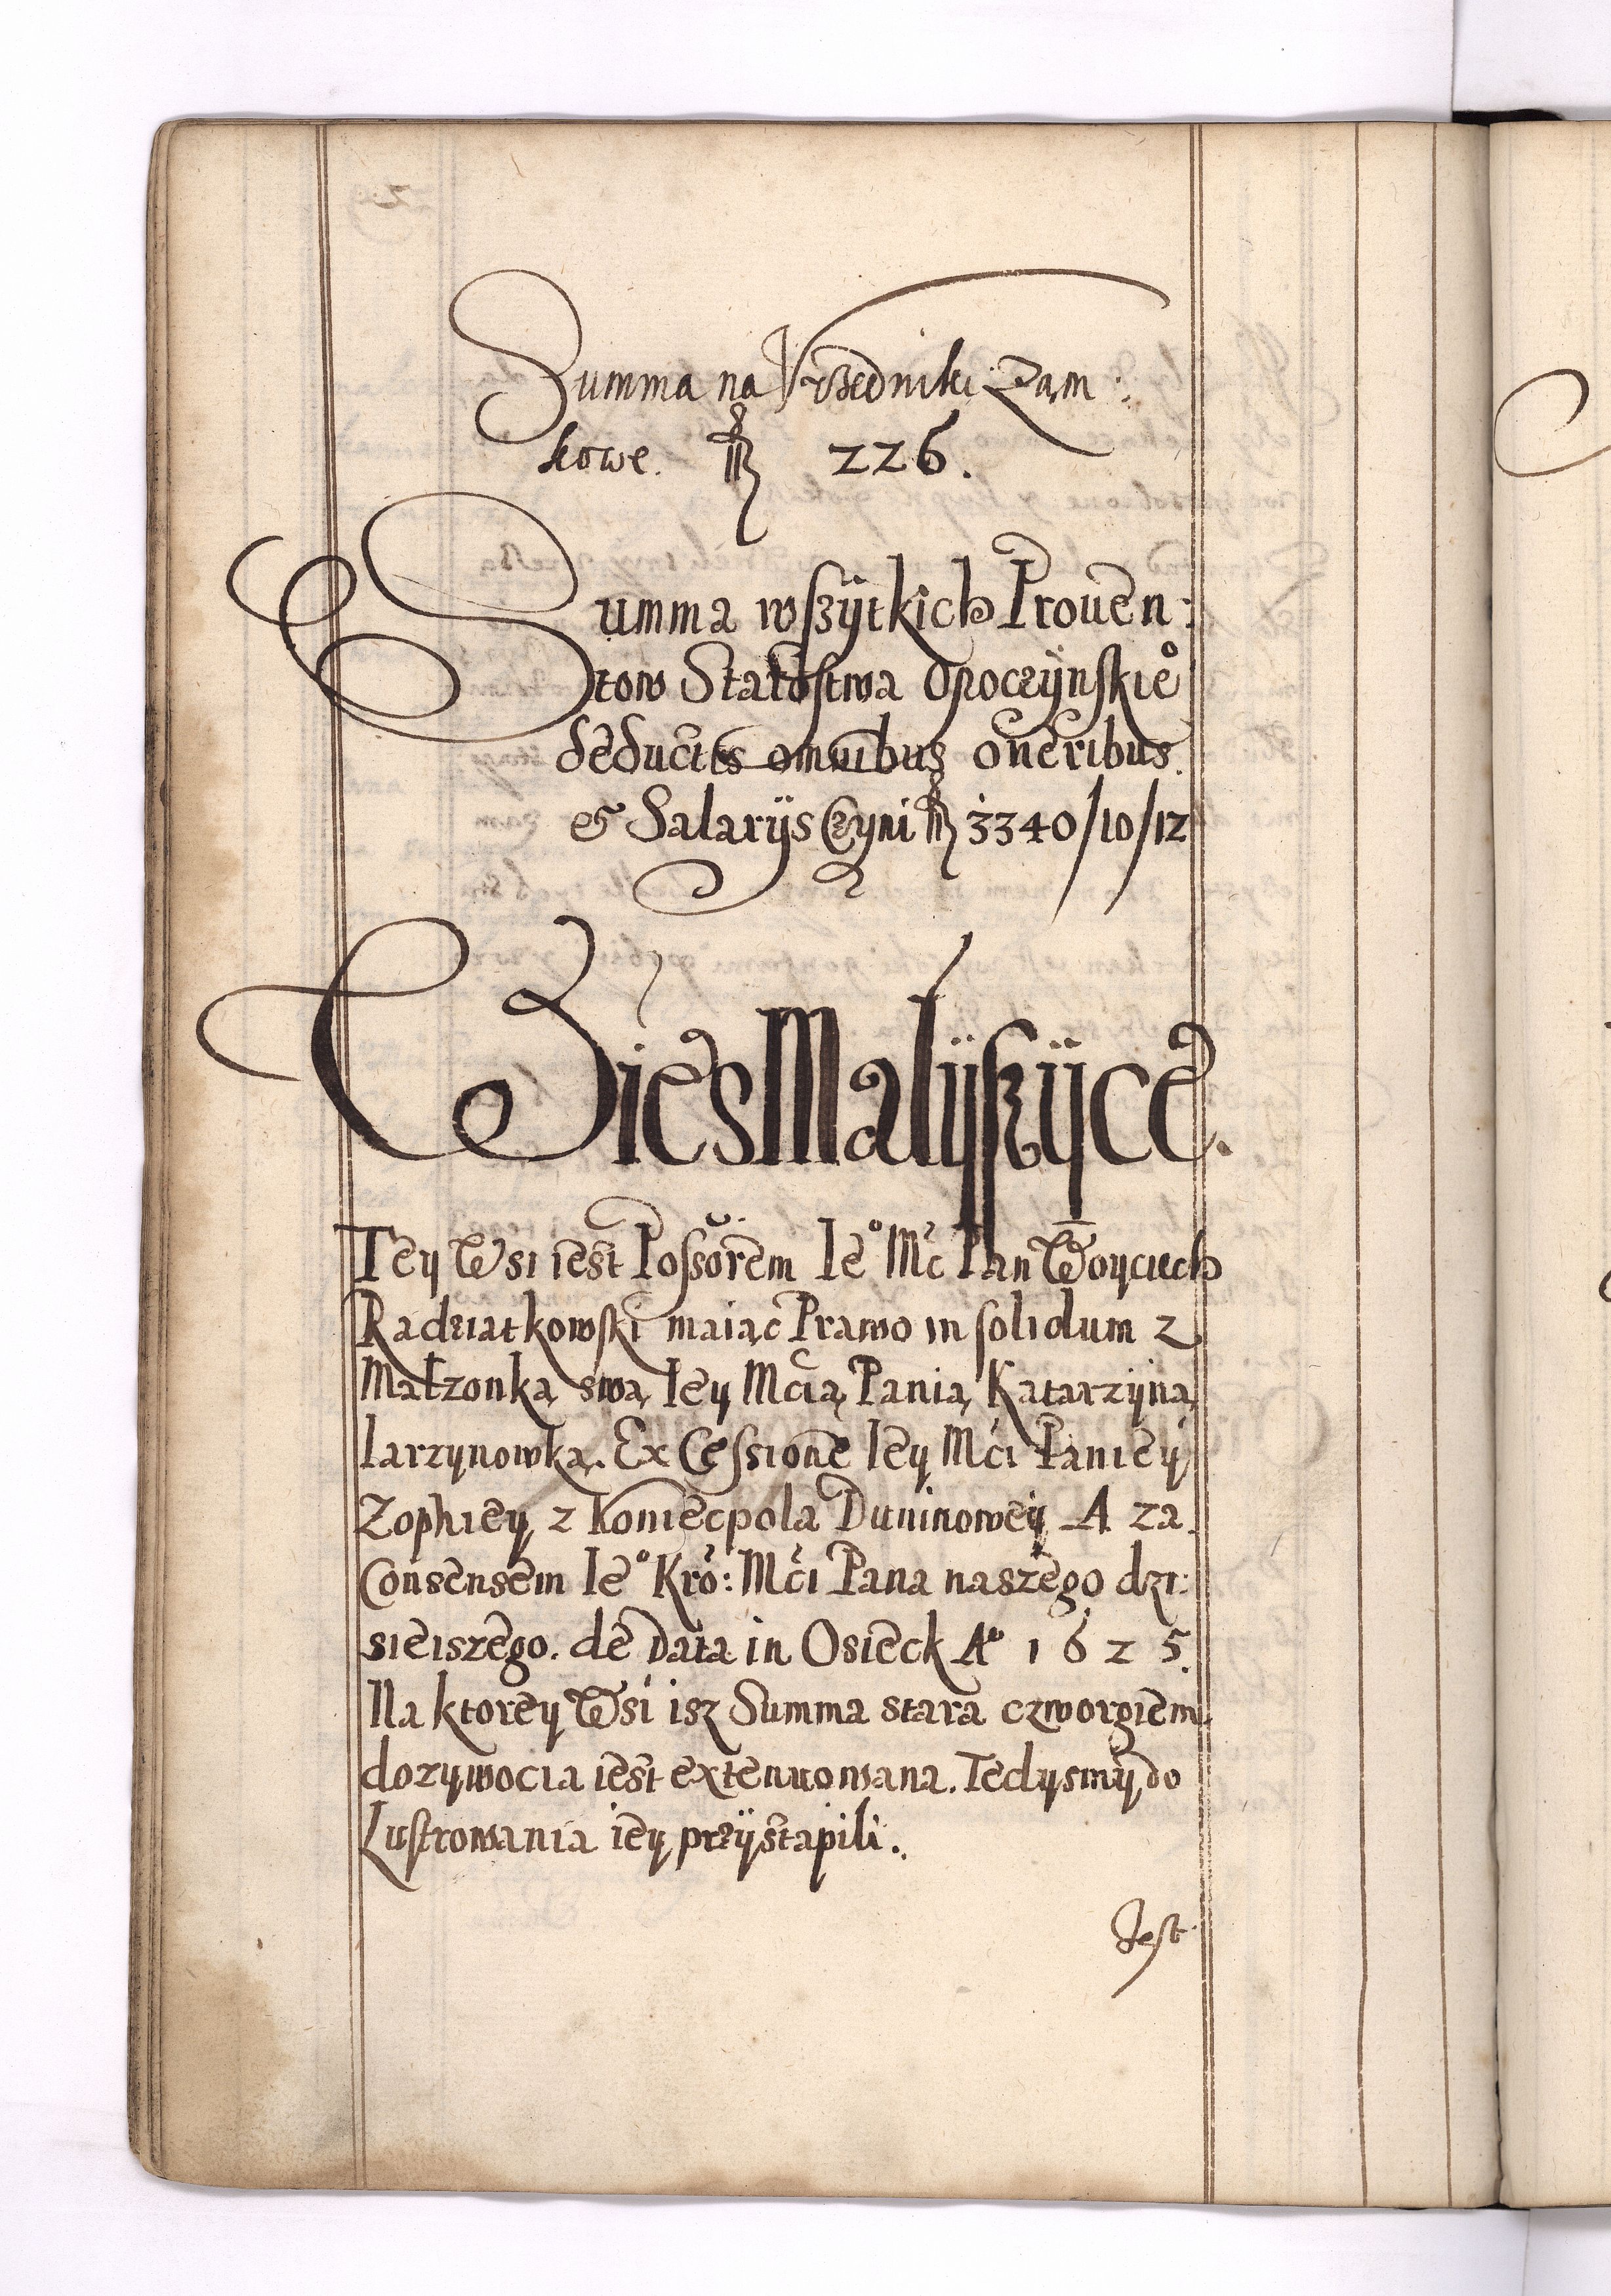 Summa na Vrzedniki Zam:
kowe. fl 226.
Summa wszytkich Prouen:
tow Starostwa Opoczynskieº
deductis omnibus oneribus
et Salarijs Czyni fl 3340/10/12
Wies Malyszyce.
Tey Wsi iest Possorem Ieº Mć Pan Woyciech
Radziatkowski maiąc Prawo in solidum z
Małzonką swą Iey Mcią Panią Katarzyną
Iarzynowką. Ex Cessione Iey Mći Paniey
Zophiey z Koniecpola Duninowey A za
Consensem Ieº Kró: Mći Pana naszego dzi:
sieiszego. de Data in Osieck Aº 1625.
Na ktorey Wsi isz Summa stara czworgiem
dozywocia iest extenuowana. Tedysmy do
Lustrowania iey przystąpili.
Jest